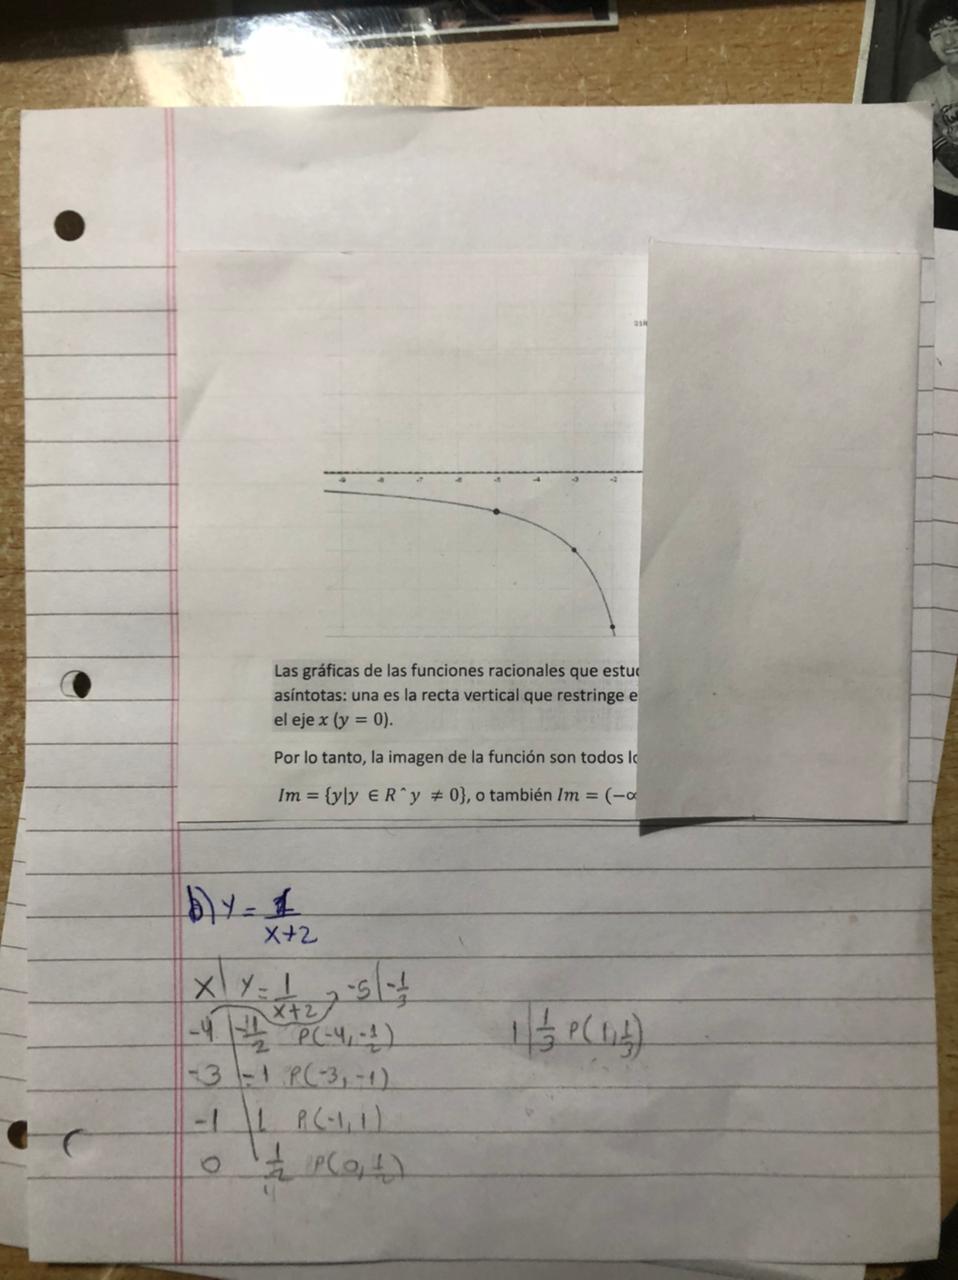 -9 -8 -7 -6 -5 -4 -3 -2
Las gráficas de las funciones racionales que estu
asíntotas: una es la recta vertical que restringe e
el eje x (y = 0).
Por lo tanto, la imagen de la función son todos lo
Im = {y|y ∈ R ^ y ≠ 0}, o también Im = (−∞
b) y = 1/x+2
x | y = 1/x+2 -5 | -1/3
-4 | -1/2 P(-4, -1/2) 1 | 1/3 P(1, 1/3)
-3 | -1 P(-3, -1)
-1 | 1 P(-1, 1)
0 | 1/2 P(0, 1/2)